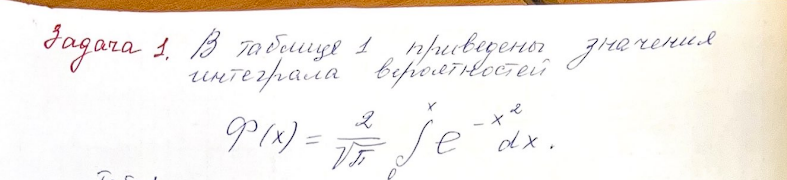 Задача 1. В таблице 1 приведены значения
интеграла вероятностей
Φ(x) = 2/√π ∫₀ˣ e^(-x²) dx.